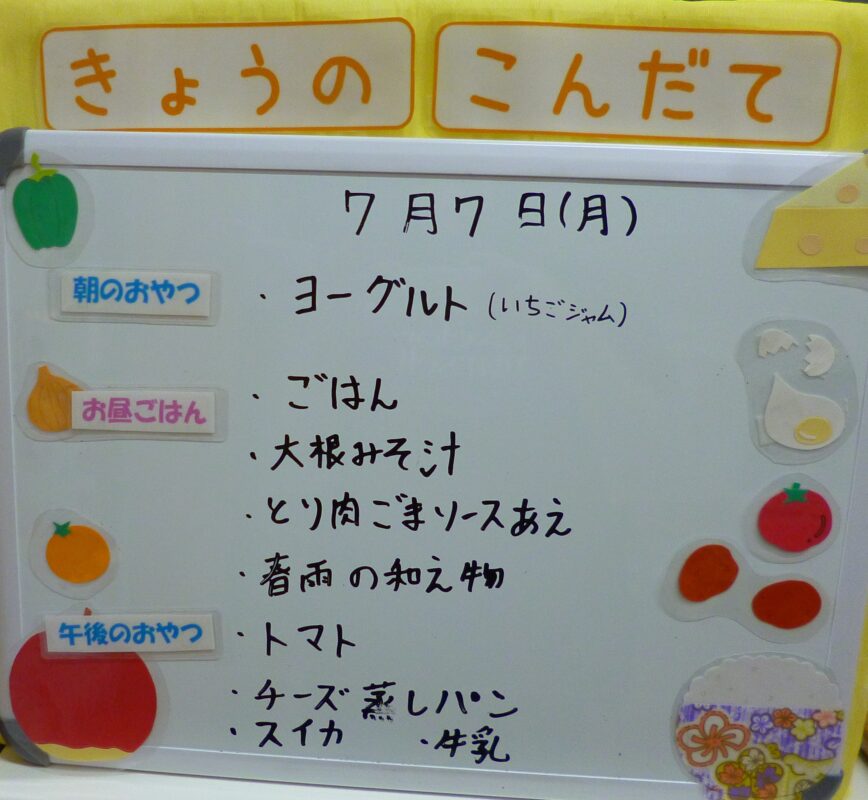 きょうの こんだて
7月7日(月)
朝のおやつ ・ヨーグルト (いちごジャム)
お昼ごはん ・ごはん
・大根みそ汁
・とり肉ごまソースあえ
・春雨の和え物
午後のおやつ ・トマト
・チーズ蒸しパン
・スイカ ・牛乳